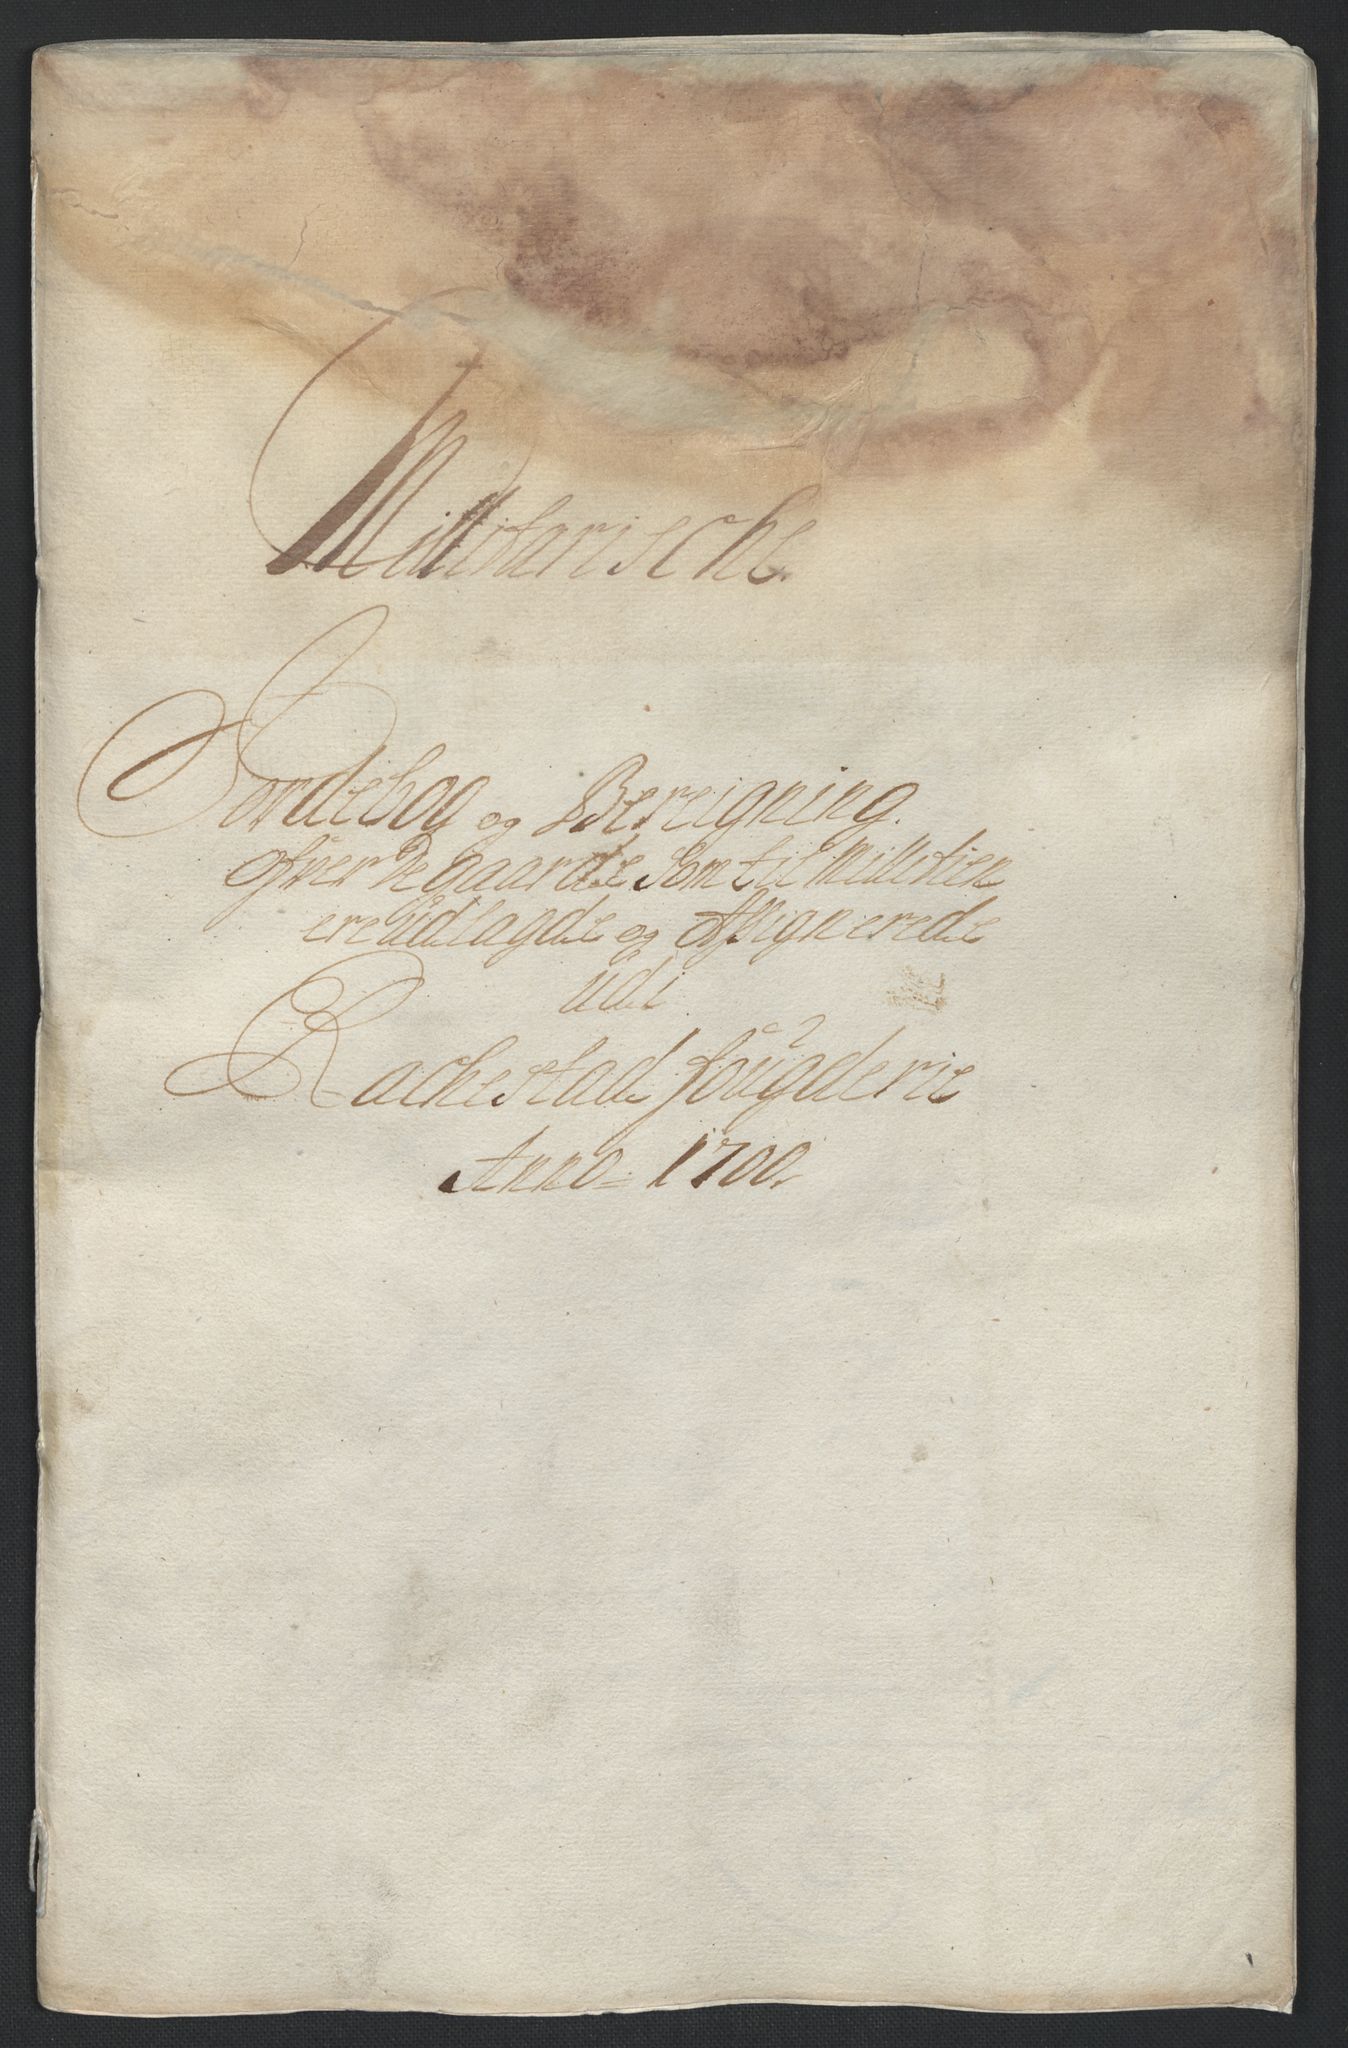 Millitarische
Jordebog og Bereigning
ofver De gaarde som til Millitien
ere Udlagde og Assignerede
udi
Rachestad fougderie
Anno 1700.